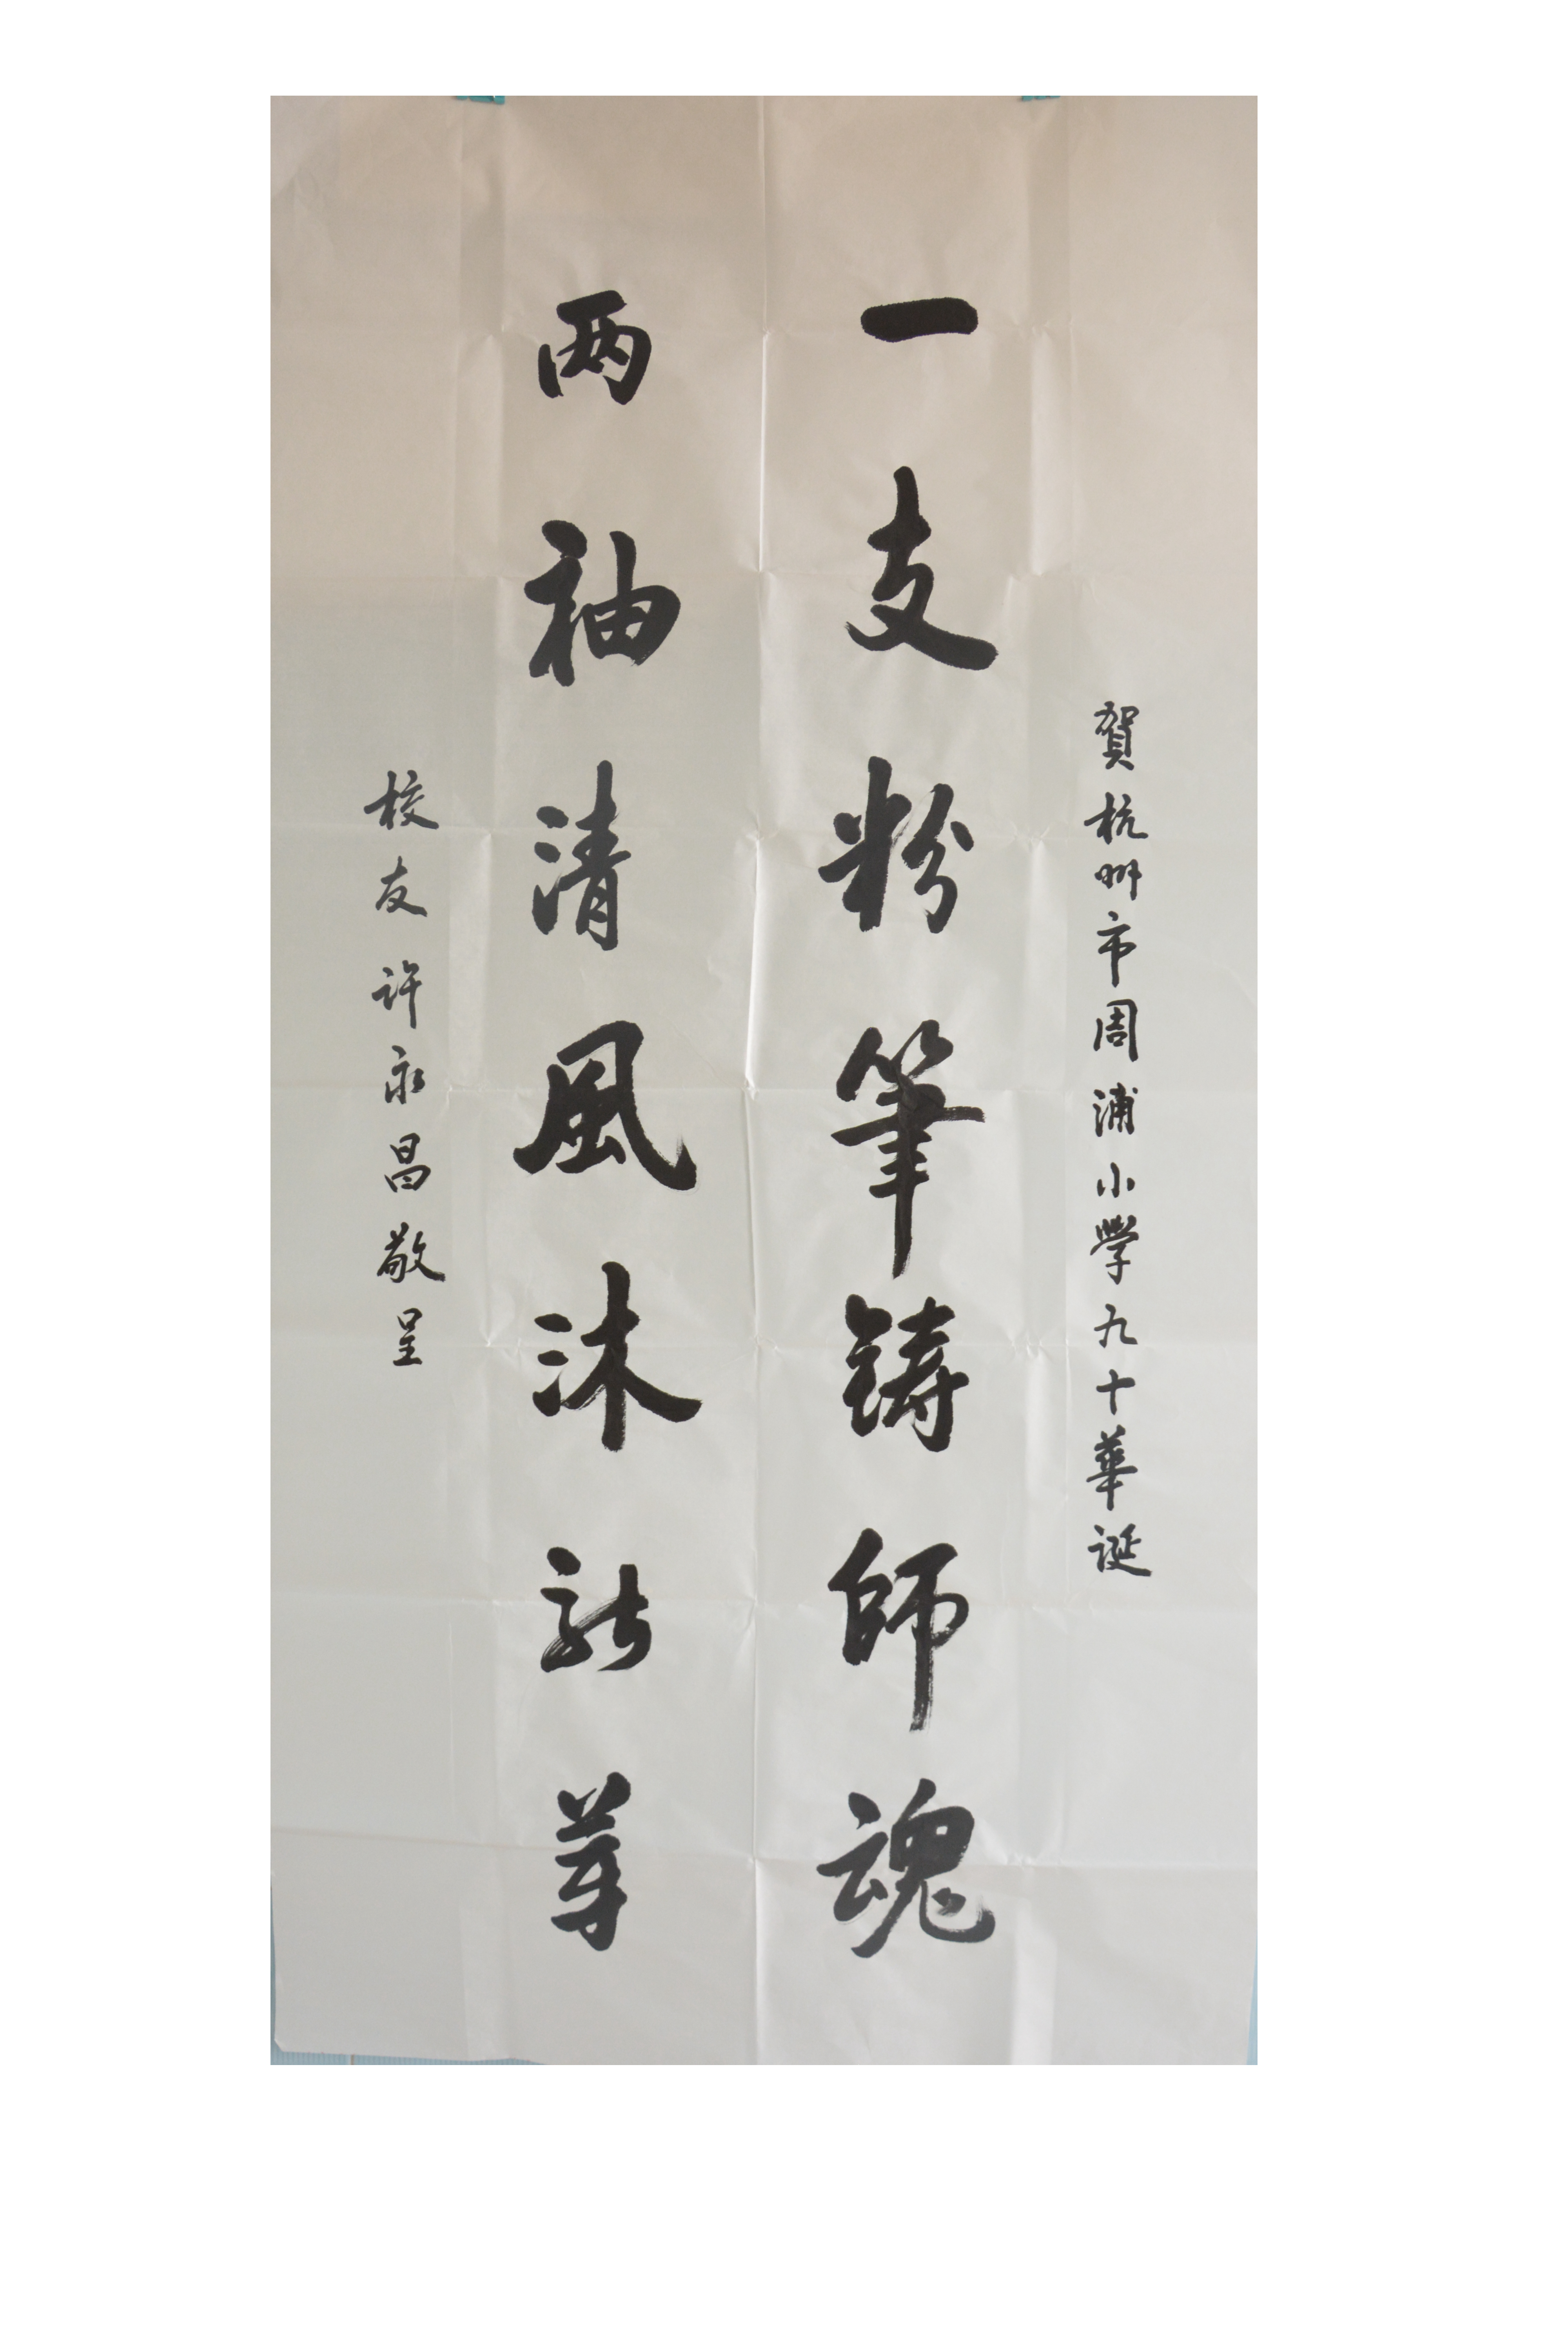 賀杭州市周浦小學九十華诞
一支粉筆铸師魂
两袖清風沐新芽
校友许永昌敬呈